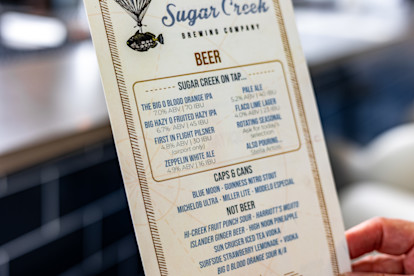 Sugar Creek
BREWING COMPANY
BEER
SUGAR CREEK ON TAP...
THE BIG O BLOOD ORANGE IPA
7.0% ABV | 70 IBU
BIG HAZY O FRUITED HAZY IPA
6.7% ABV | 45 IBU
FIRST IN FLIGHT PILSNER
4.8% ABV | 30 IBU
(airport only)
ZEPPELIN WHITE ALE
4.9% ABV | 16 IBU
PALE ALE
5.2% ABV | 40 IBU
FLACO LIME LAGER
4.0% ABV | 15 IBU
ROTATING SEASONAL
Ask for today's
selection
ALSO POURING...
CAPS & CANS
BLUE MOON - GUINNESS NITRO STOUT
MICHELOB ULTRA - MILLER LITE - MODELO ESPECIAL
NOT BEER
HI-CREEK FRUIT PUNCH SOUR - HARRIOTT'S MOJITO
ISLANDER GINGER BEER - HIGH NOON PINEAPPLE
SUN CRUISER ICED TEA VODKA
SURFSIDE STRAWBERRY LEMONADE + VODKA
BIG O BLOOD ORANGE SOUR N/A